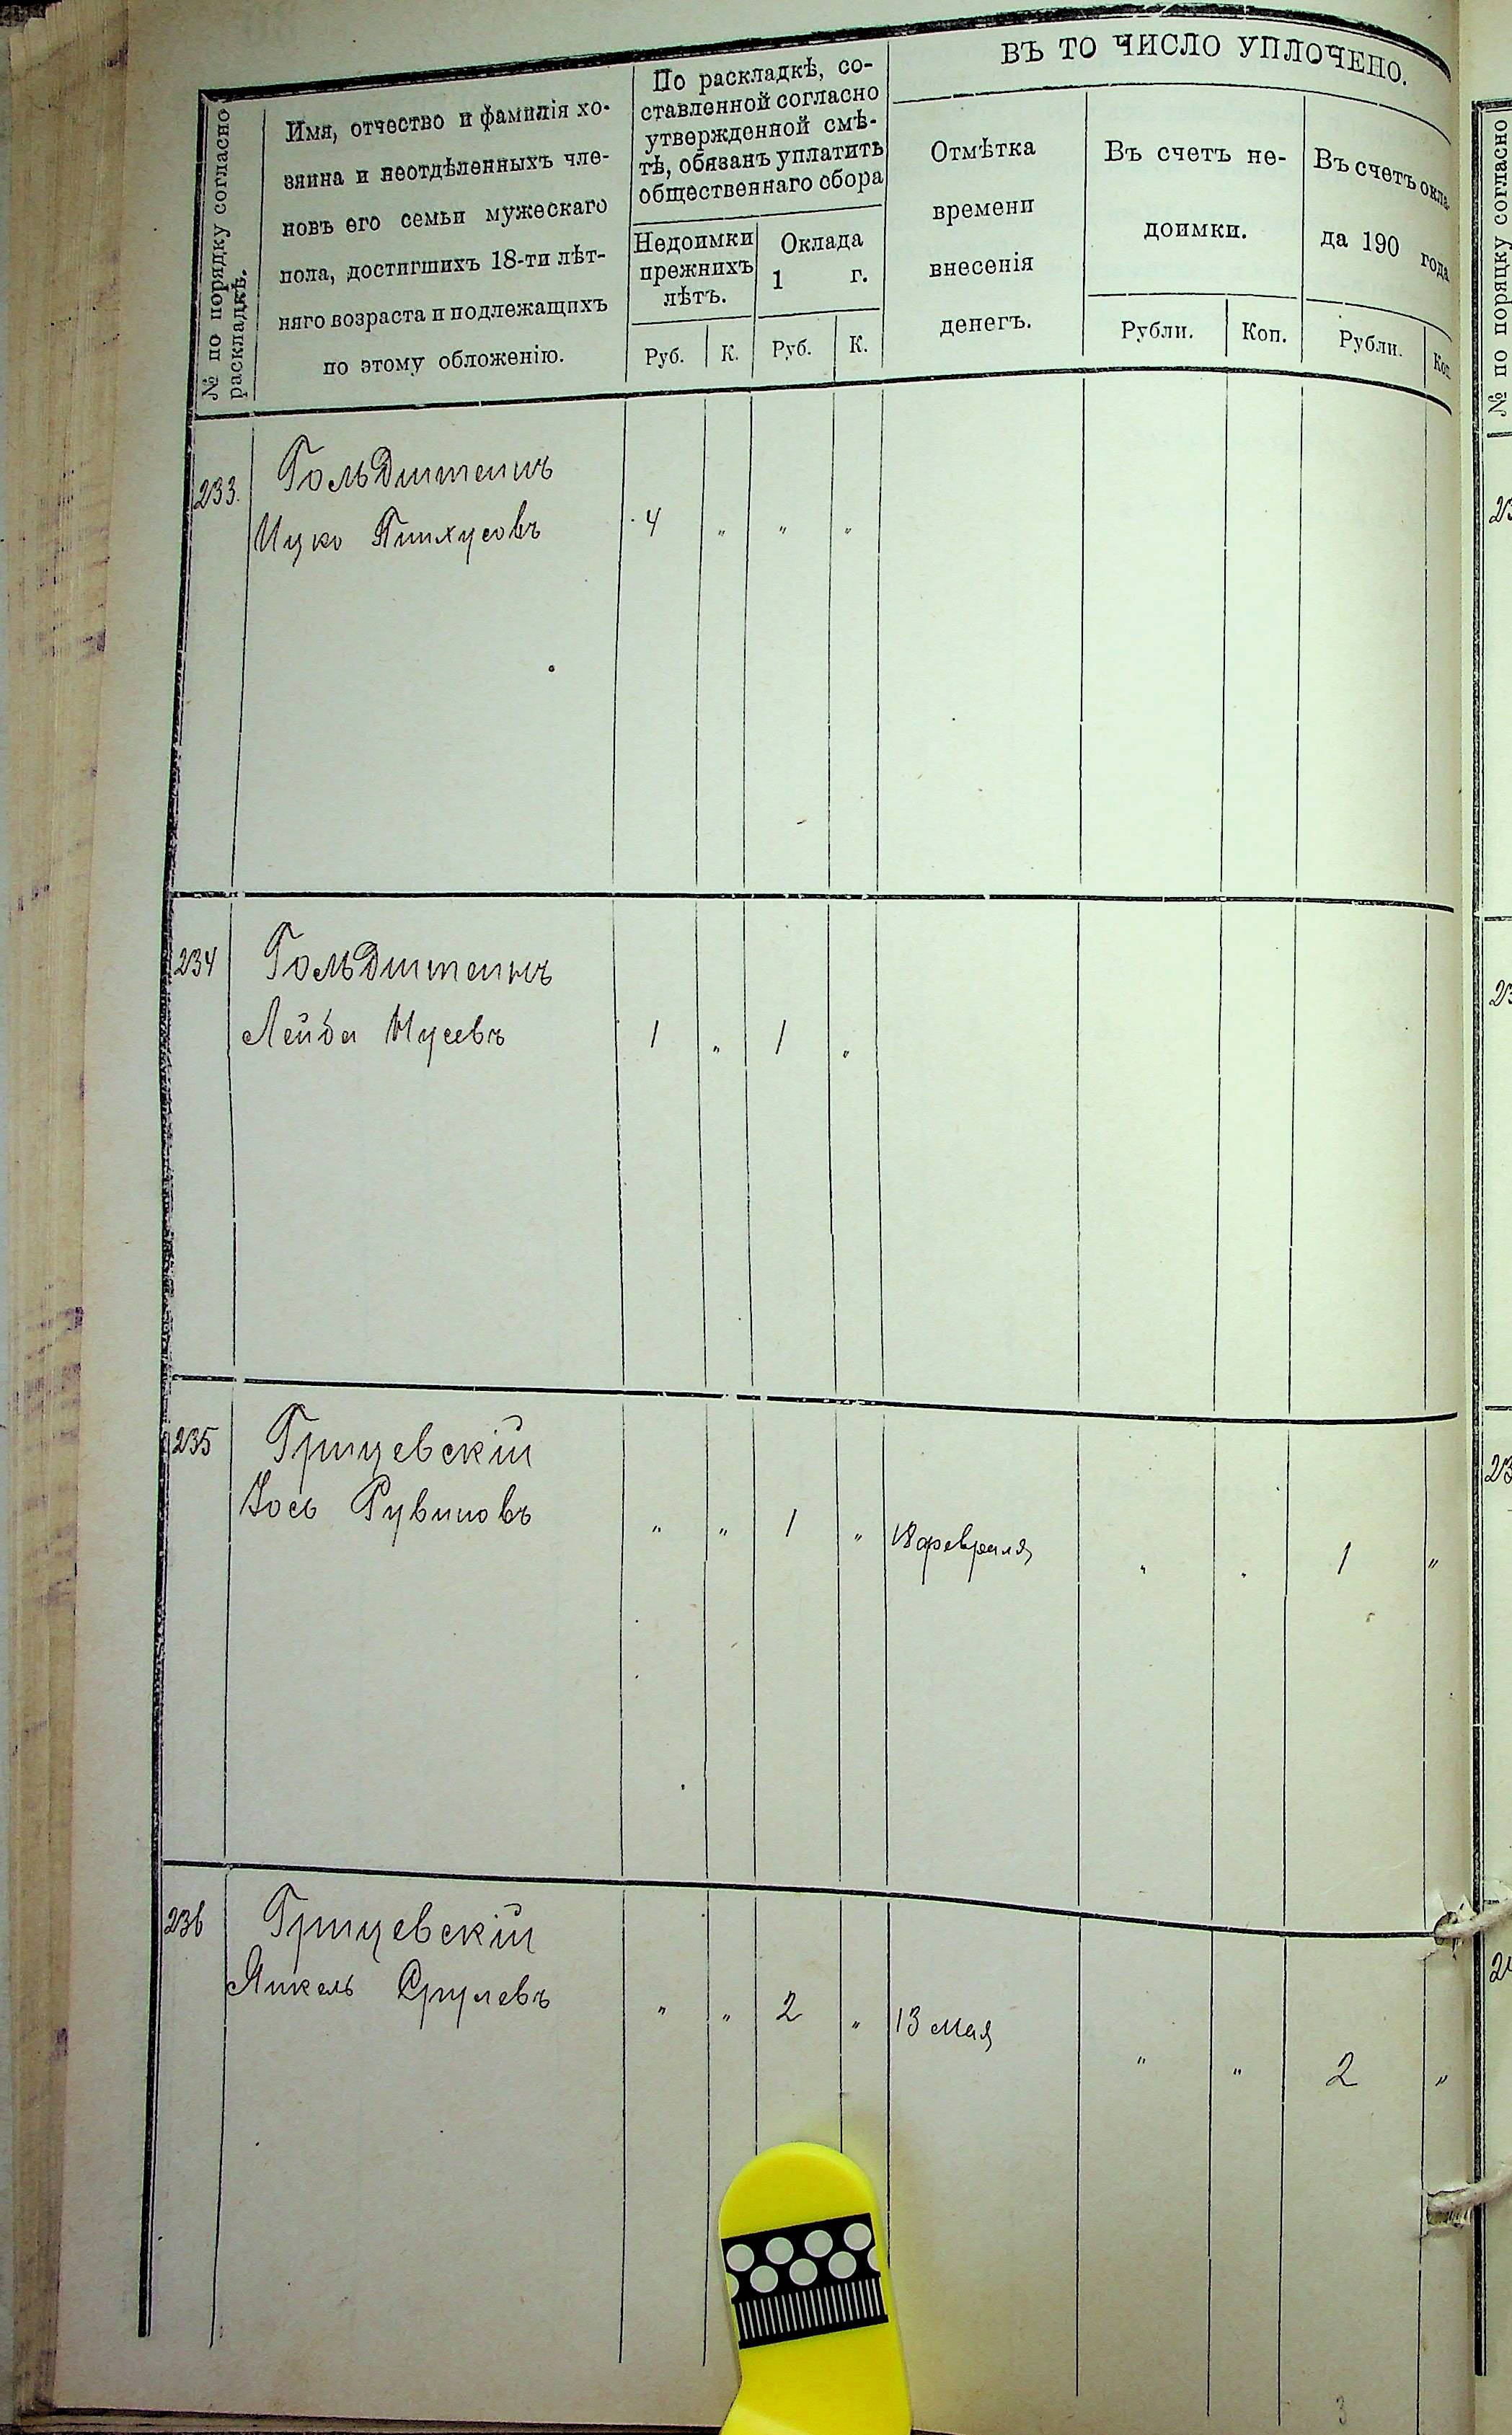 № по порядку согласно раскладкѣ.
Имя, отчество и фамилія хо-
зяина и неотдѣленныхъ чле-
новъ его семьи мужескаго
пола, достигшихъ 18-ти лѣт-
няго возраста и подлежащихъ
по этому обложенію.
По раскладкѣ, со-
ставленной согласно
утвержденной смѣ-
тѣ, обязанъ уплатить
общественнаго сбора
Недоимки
прежнихъ
лѣтъ.
Оклада
1 г.
Руб. К. Руб. К.
ВЪ ТО ЧИСЛО УПЛОЧЕНО.
Отмѣтка
времени
внесенія
денегъ.
Въ счетъ не-
доимки.
Въ счетъ окла-
да 190 года
Рубли. Коп. Рубли. Коп.
233. Гольдштеинъ
Ицко Пинхусовъ 4 " " "
234 Гольдштеинъ
Лейба Мусевъ 1 " 1 "
235 Грицевскій
Іось Рувиновъ " " 1 " 18 февраля " " 1 "
236 Грицевскій
Янкель Срулевъ " " 2 " 13 мая " " 2 "
3
№ по порядку согласно